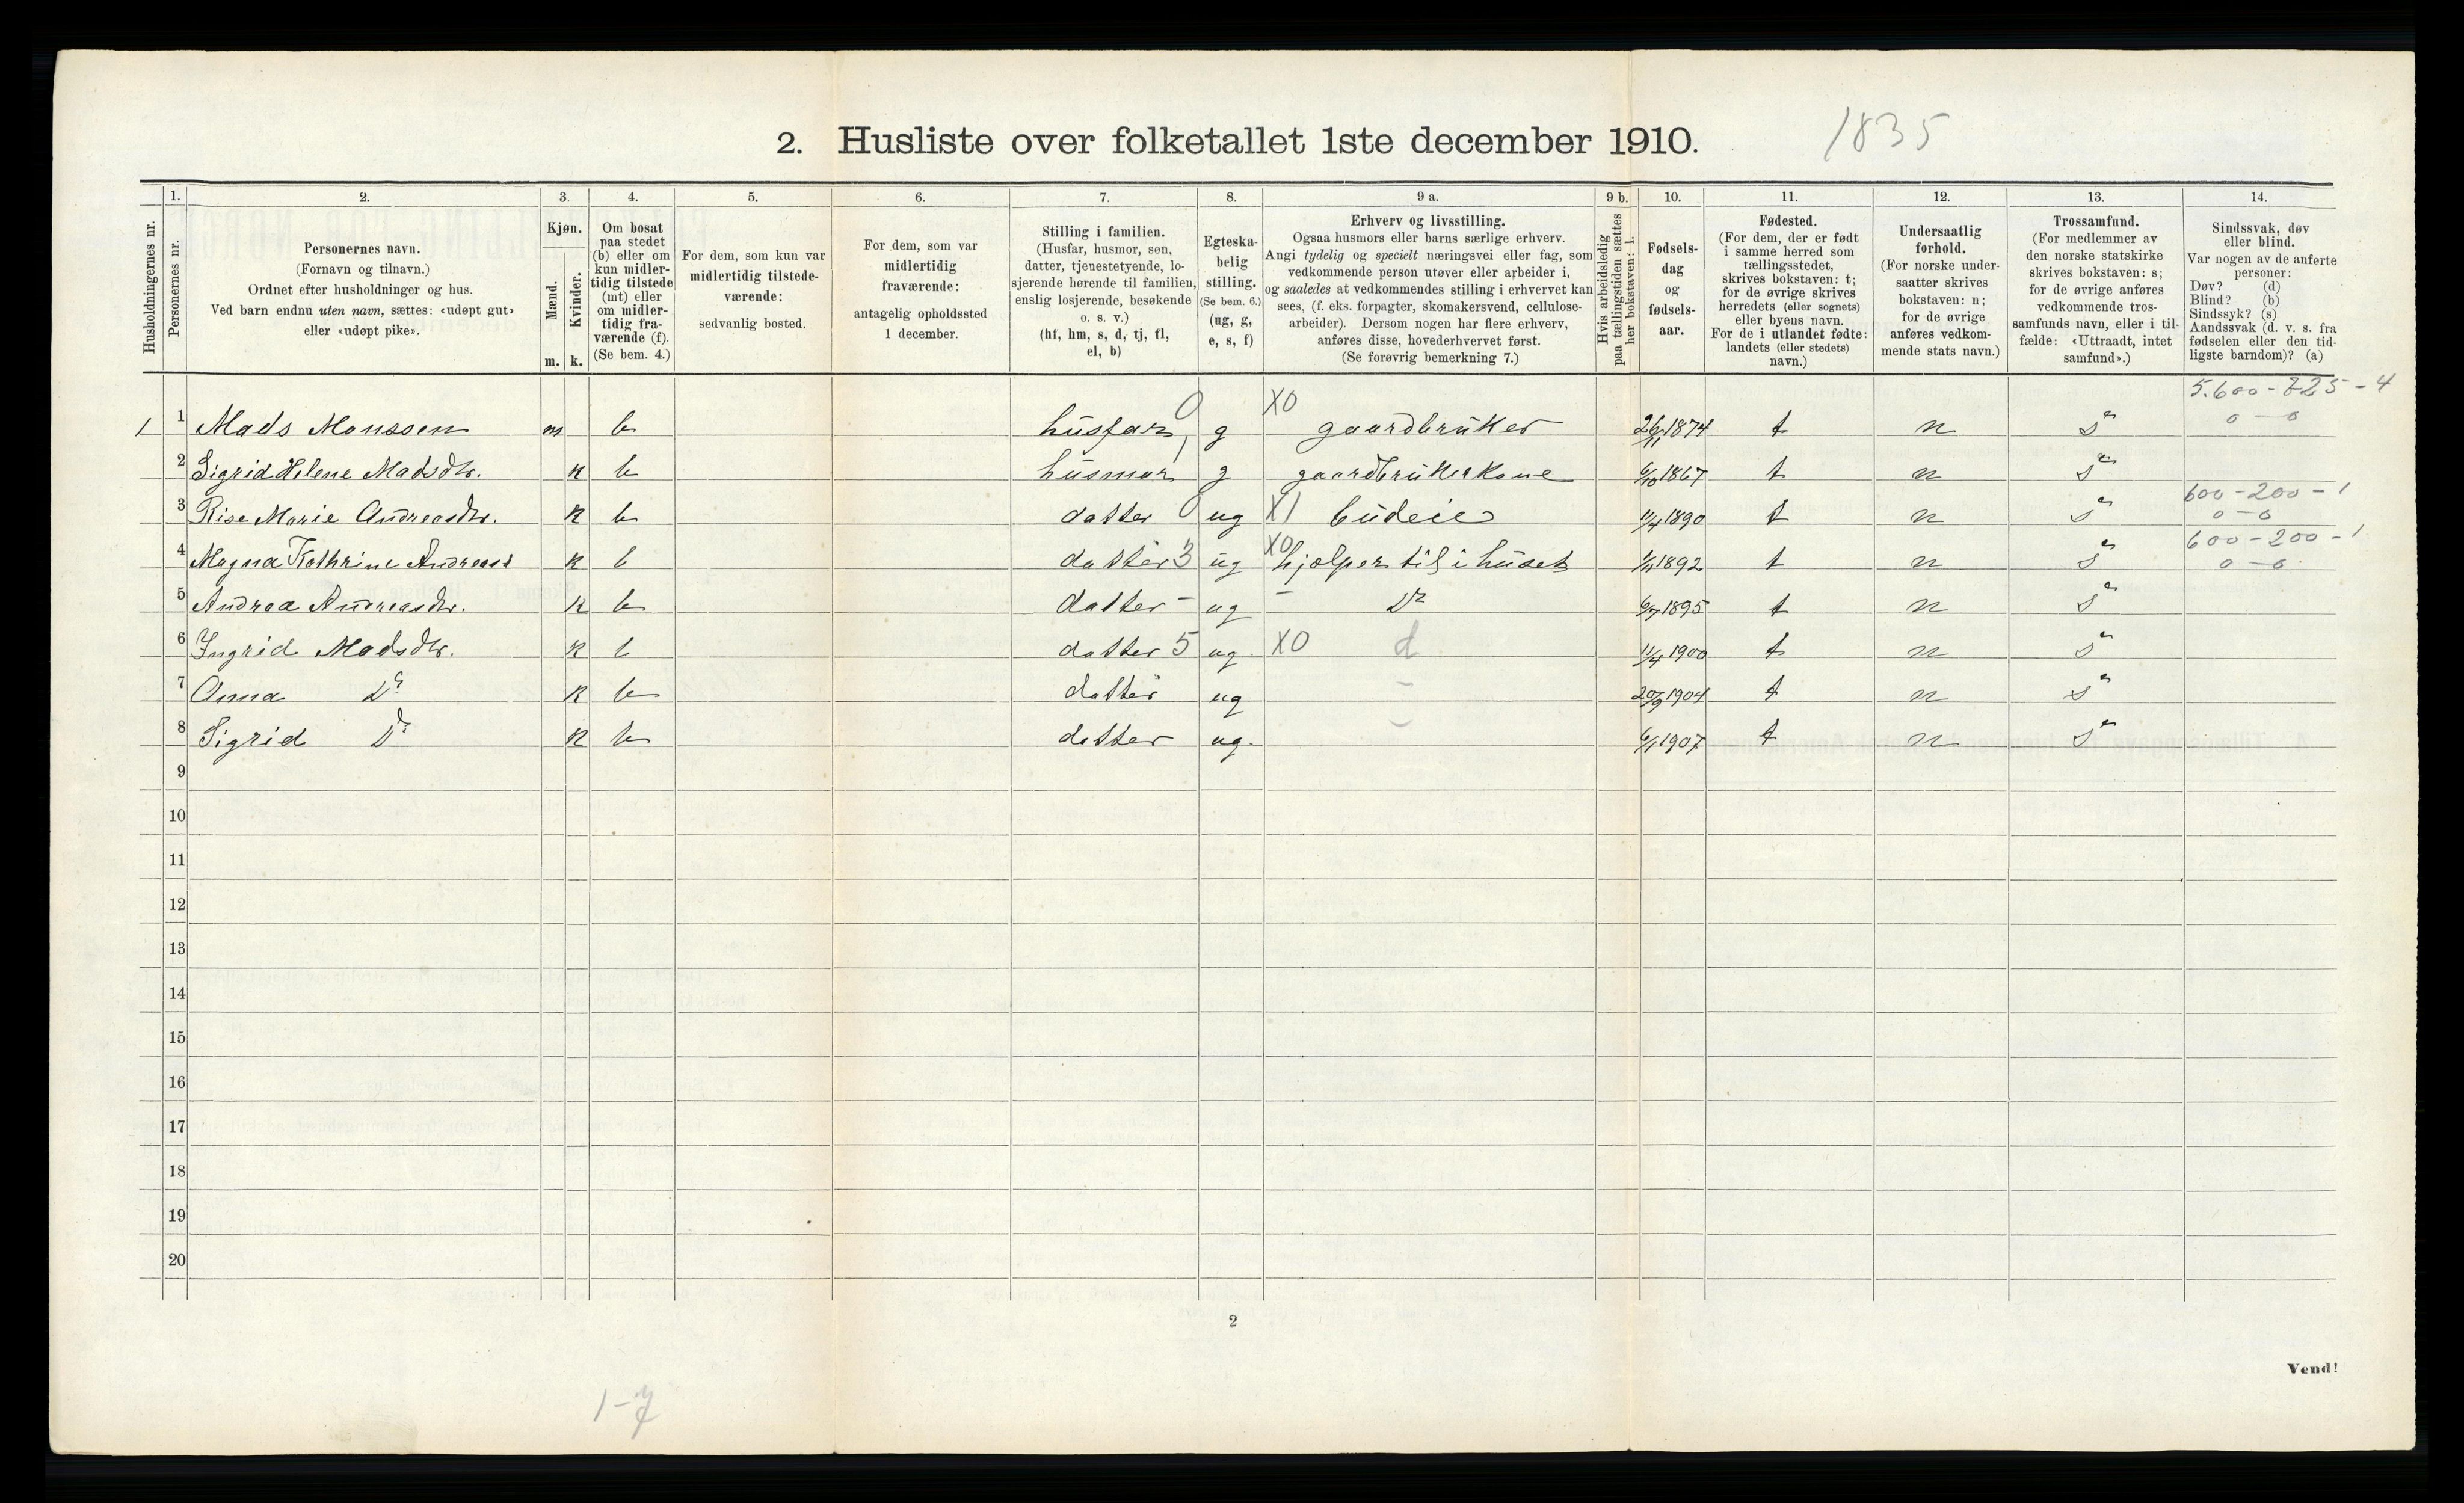 2. Husliste over folketallet 1ste december 1910. 1835
Husholdningernes nr.
1. Personernes nr.
2. Personernes navn.
(Fornavn og tilnavn.)
Ordnet efter husholdninger og hus.
Ved barn endnu uten navn, sættes: «udøpt gut»
eller «udøpt pike».
3. Kjøn.
Mænd. m.
Kvinder. k.
4. Om bosat
paa stedet
(b) eller om
kun midler-
tidig tilstede
(mt) eller
om midler-
tidig fra-
værende (f).
(Se bem. 4.)
5. For dem, som kun var
midlertidig tilstede-
værende:
sedvanlig bosted.
6. For dem, som var
midlertidig
fraværende:
antagelig opholdssted
1 december.
7. Stilling i familien.
(Husfar, husmor, søn,
datter, tjenestetyende, lo-
sjerende hørende til familien,
enslig losjerende, besøkende
o. s. v.)
(hf, hm, s, d, tj, fl,
el, b)
8. Egteska-
belig
stilling.
(Se bem. 6.)
(ug, g,
e, s, f)
9 a. Erhverv og livsstilling.
Ogsaa husmors eller barns særlige erhverv.
Angi tydelig og specielt næringsvei eller fag, som
vedkommende person utøver eller arbeider i,
og saaledes at vedkommendes stilling i erhvervet kan
sees, (f. eks. forpagter, skomakersvend, cellulose-
arbeider). Dersom nogen har flere erhverv,
anføres disse, hovederhvervet først.
(Se forøvrig bemerkning 7.)
9 b. Hvis arbeidsledig
paa tællingstiden sættes
her bokstaven: l.
10. Fødsels-
dag
og
fødsels-
aar.
11. Fødested.
(For dem, der er født
i samme herred som
tællingsstedet,
skrives bokstaven: t;
for de øvrige skrives
herredets (eller sognets)
eller byens navn.
For de i utlandet fødte:
landets (eller stedets)
navn.)
12. Undersaatlig
forhold.
(For norske under-
saatter skrives
bokstaven: n;
for de øvrige
anføres vedkom-
mende stats navn.)
13. Trossamfund.
(For medlemmer av
den norske statskirke
skrives bokstaven: s;
for de øvrige anføres
vedkommende tros-
samfunds navn, eller i til-
fælde: «Uttraadt, intet
samfund».)
14. Sindssvak, døv
eller blind.
Var nogen av de anførte
personer:
Døv? (d)
Blind? (b)
Sindssyk? (s)
Aandssvak (d. v. s. fra
fødselen eller den tid-
ligste barndom)? (a)
1 1 Mads Monssen m b husfar 0 g X0 gaardbruker 26/11 1874 t n s 5.600-725-4 0-0
2 Sigrid Helene Madsdtr. k b husmor g gaardbrukerkone 6/10 1867 t n s
3 Rise Marie Andreasdtr. k b datter 0 ug X1 budeie 11/4 1890 t n s 600-200-1 0-0
4 Magna Kathrine Andreasd k b datter 3 ug X0 hjælper til i huset 1/11 1892 t n s 600-200-1 0-0
5 Andrea Andreasdtr. k b datter - ug - Do 6/7 1895 t n s
6 Ingrid Madsdtr. k b datter 5 ug X0 d 11/4 1900 t n s
7 Anna Do k b datter ug - 20/9 1904 t n s
8 Sigrid Do k b datter ug. - 6/1 1907 t n s
9
10
11
12
13
14
15
16
17
18
19
20
2
Vend!
1-7